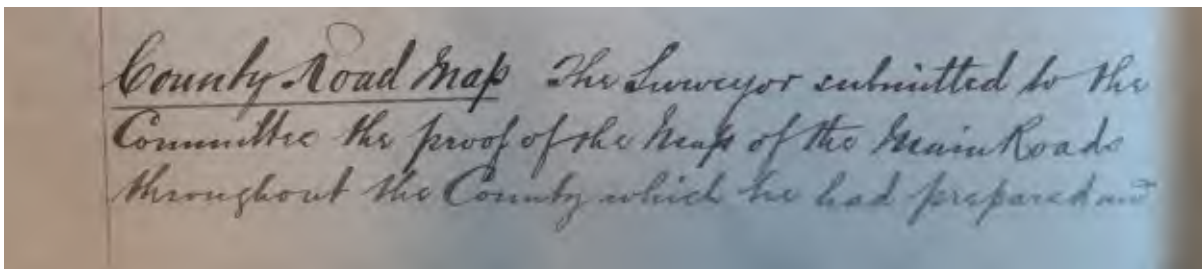 County Road Map The Surveyor submitted to the
Committee the proof of the Map of the Main Roads
throughout the County which he had prepared and